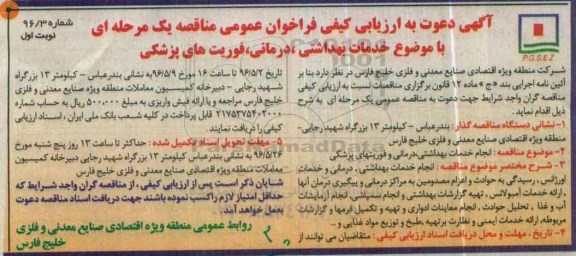 آگهی دعوت به ارزیابی کیفی فراخوان عمومی مناقصه یک مرحله ای
با موضوع خدمات بهداشتی ،درمانی،فوریت های پزشکی
شماره ۹۶/۳
نوبت اول
P.G.S.E.Z
شرکت منطقه ویژه اقتصادی صنایع معدنی و فلزی خلیج فارس در نظر دارد بنا بر
آئین نامه اجرایی بند «ج» ماده ۱۲ قانون برگزاری مناقصات نسبت به ارزیابی کیفی
مناقصه گران واجد شرایط جهت دعوت به مناقصه عمومی یک مرحله ای به شرح
ذیل اقدام نماید
۱-نشانی دستگاه مناقصه گذار: بندرعباس - کیلومتر ۱۳ بزرگراه شهید رجایی-
منطقه ویژه اقتصادی صنایع معدنی و فلزی خلیج فارس
۲-موضوع مناقصه: انجام خدمات بهداشتی،درمانی و فوریتهای پزشکی
۳- شرح مختصر موضوع مناقصه: انجام خدمات بهداشتی ، درمانی و خدمات
اورژانس، رسیدگی به حوادث و اعزام مصدومین به مراکز درمانی و پیگیری درمان آنها
، ارائه خدمات آمبولانس ، تهیه گزارشات بهداشتی و انجام سمپاشی، انجام آزمایشات
آب و غذا ، تحلیل حوادث ، انجام معاینات ادواری و تهیه و تکمیل فرمها و گزارشات
مربوطه، ارائه خدمات ایمنی و نظارت بر تهیه ،طبخ و توزیع مواد غذایی و -
۴- تاریخ ، مهلت و محل دریافت اسناد ارزیابی کیفی : متقاضیان می توانند از
تاریخ ۹۶/۵/۲ تا ساعت ۱۶ مورخ ۹۶/۵/۹ به نشانی بندرعباس - کیلومتر ۱۳ بزرگراه
شهید رجایی - دبیرخانه کمیسیون معاملات منطقه ویژه صنایع معدنی و فلزی
خلیج فارس مراجعه و یا ارائه فیش واریزی به مبلغ ۵۰۰،۰۰۰ ریال به حساب شماره
۲۱۷۵۳۷۵۴۰۲۰۰۲ قابل پرداخت در کلیه شعب بانک ملی ایران ، اسناد ارزیابی
کیفی را دریافت نمایند.
۵- مهلت تحویل اسناد تکمیل شده : حداکثر تا ساعت ۱۳ روز پنج شنبه مورخ
۹۶/۵/۲۶ به نشانی بندرعباس کیلومتر ۱۳ بزرگراه شهید رجایی دبیرخانه کمیسیون
معاملات منطقه ویژه اقتصادی صنایع معدنی و فلزی خلیج فارس
شایان ذکر است پس از ارزیابی کیفی ، از مناقصه گران واجد شرایط که
حداقل امتیاز لازم را کسب نموده باشند جهت دریافت اسناد مناقصه دعوت
بعمل خواهد آمد.
روابط عمومی منطقه ویژه اقتصادی صنایع معدنی و فلزی
خلیج فارس